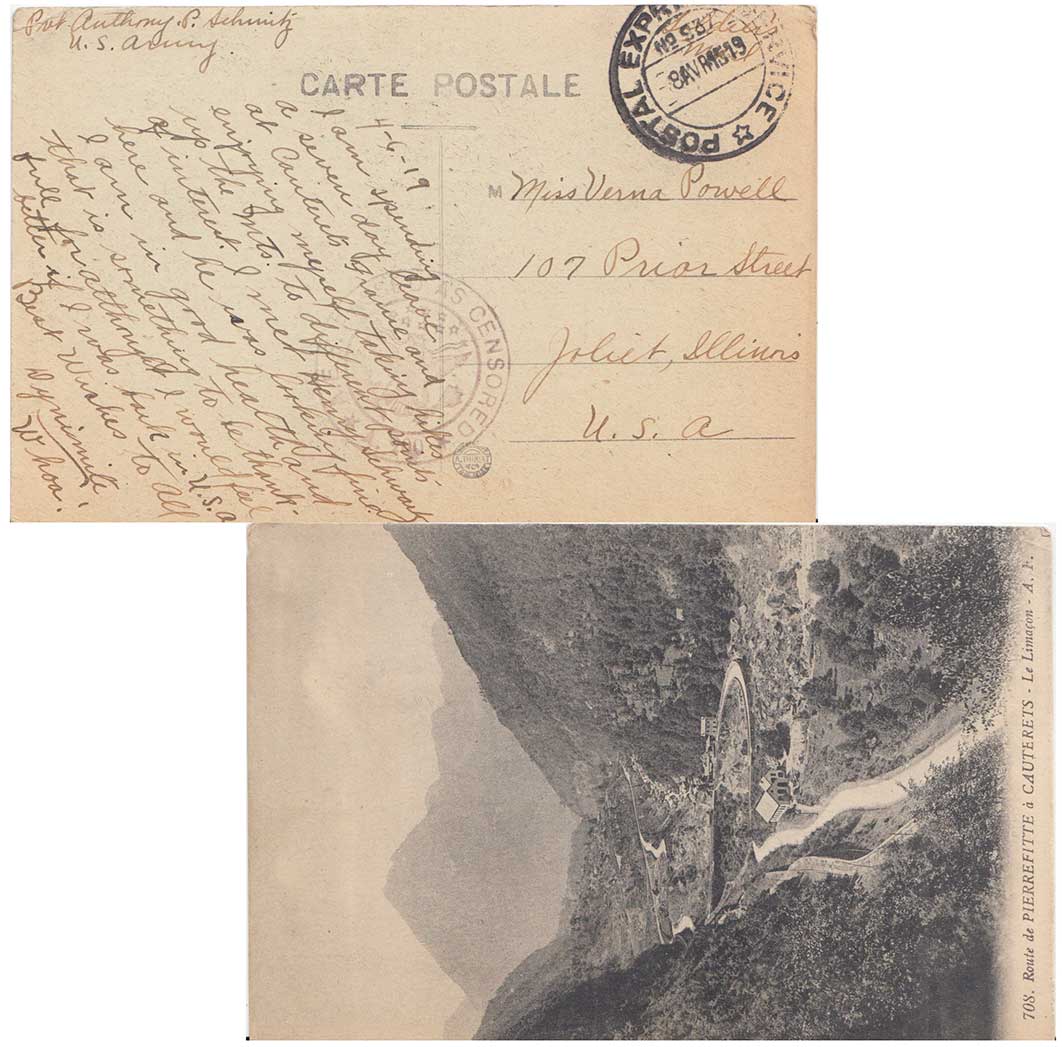 Pvt Anthony. P. Schmitz
U. S. Army.
Soldiers
Mail
CARTE POSTALE
POSTAL EXPRESS SERVICE
No 937
8 AVR 1919
4-6-19
I am spending
a seven day leave
at Cauterets France and
enjoying myself taking hikes
up the Mts to different points
of interest. I met Henry Schwartz
here and he was looking fine
I am in good health and
that is something to be thank-
full for althought I would feel
better if I was back in U.S.A
Best Wishes to all
Dynimite
Whoa!
M Miss Verna Powell
107 Prior Street
Joliet, Illinois
U. S. A
A.S CENSORED
708. Route de PIERREFITTE à CAUTERETS - Le Limaçon - A. F.